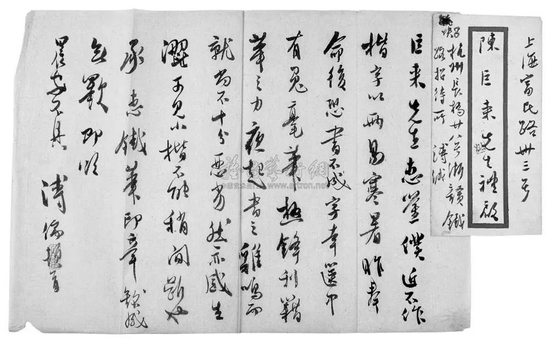 上海富民路卅三号
陳巨來先生禮啟
杭州長橋廿八号浙贛鐵
路招待所 溥緘
巨來先生惠鑒僕近不作
楷字以兩易寒暑昨奉
命後恐書不成字幸篋中
有兔毫筆極鋒利藉
筆之力夜起書之雞鳴而
就尚不十分惡劣然亦感生
澀可見小楷不能稍間斷也
承惠鐵筆印章銘感
無斁即頌
晨安不具 溥儒頓首